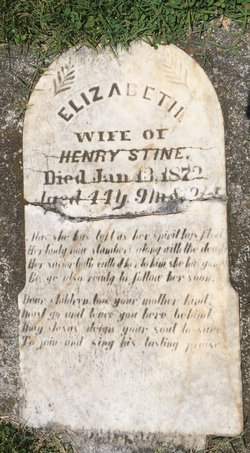 ELIZABETH
WIFE OF
HENRY STINE.
Died Jan. 13, 1872
Aged 44y 9m & 2
she has left us her spirit has fled
Her body now slumbers along with the dead
Her Savior hath called her, to him she has gone
Be ye also ready to follow her soon.
Dear children, love your mother kind,
must go and leave you here behind,
May Jesus deign your soul to save
To join and sing his lasting praise